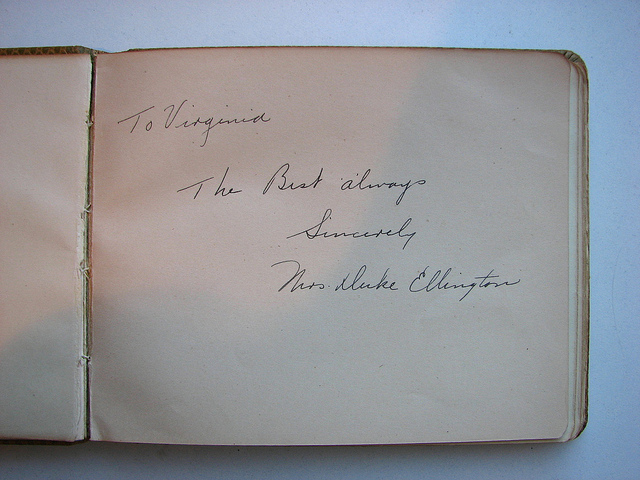 To Virginia
The Best always
Sincerely
Mrs. Duke Ellington